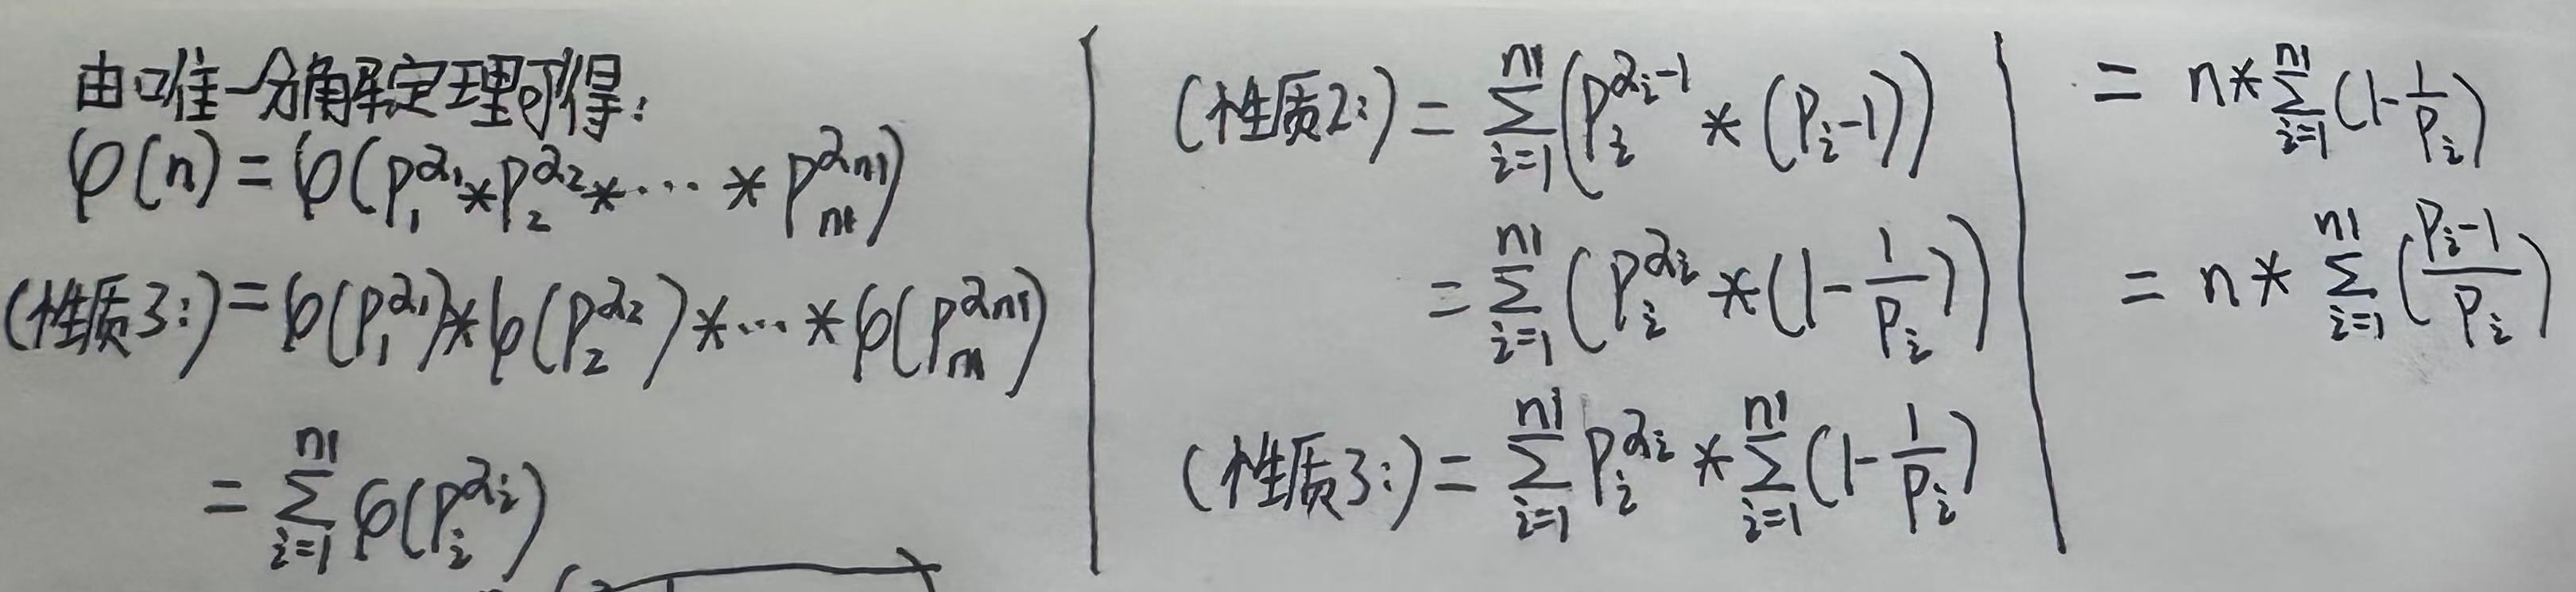 由唯一分解定理可得:
φ(n) = φ(p₁^α₁ * p₂^α₂ * ⋯ * pₘ^αₘ)
(性质3:) = φ(p₁^α₁) * φ(p₂^α₂) * ⋯ * φ(pₘ^αₘ)
= ∑_{i=1}^{m} φ(p_i^{α_i})
(性质2:) = ∑_{i=1}^{m} (p_i^{α_i-1} * (p_i-1))
= ∑_{i=1}^{m} (p_i^{α_i} * (1-1/p_i))
(性质3:) = ∑_{i=1}^{m} p_i^{α_i} * ∑_{i=1}^{m} (1-1/p_i)
= n * ∑_{i=1}^{m} (1-1/p_i)
= n * ∑_{i=1}^{m} ((p_i-1)/p_i)